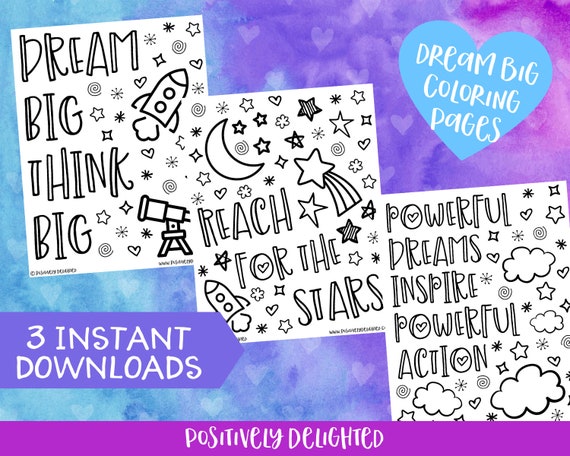 DREAM
BIG
THINK
BIG
© POSITIVELY DELIGHTED
REACH
FOR THE
STARS
DREAM BIG
COLORING
PAGES
POWERFUL
DREAMS
INSPIRE
POWERFUL
ACTION
3 INSTANT
DOWNLOADS
POSITIVELY DELIGHTED